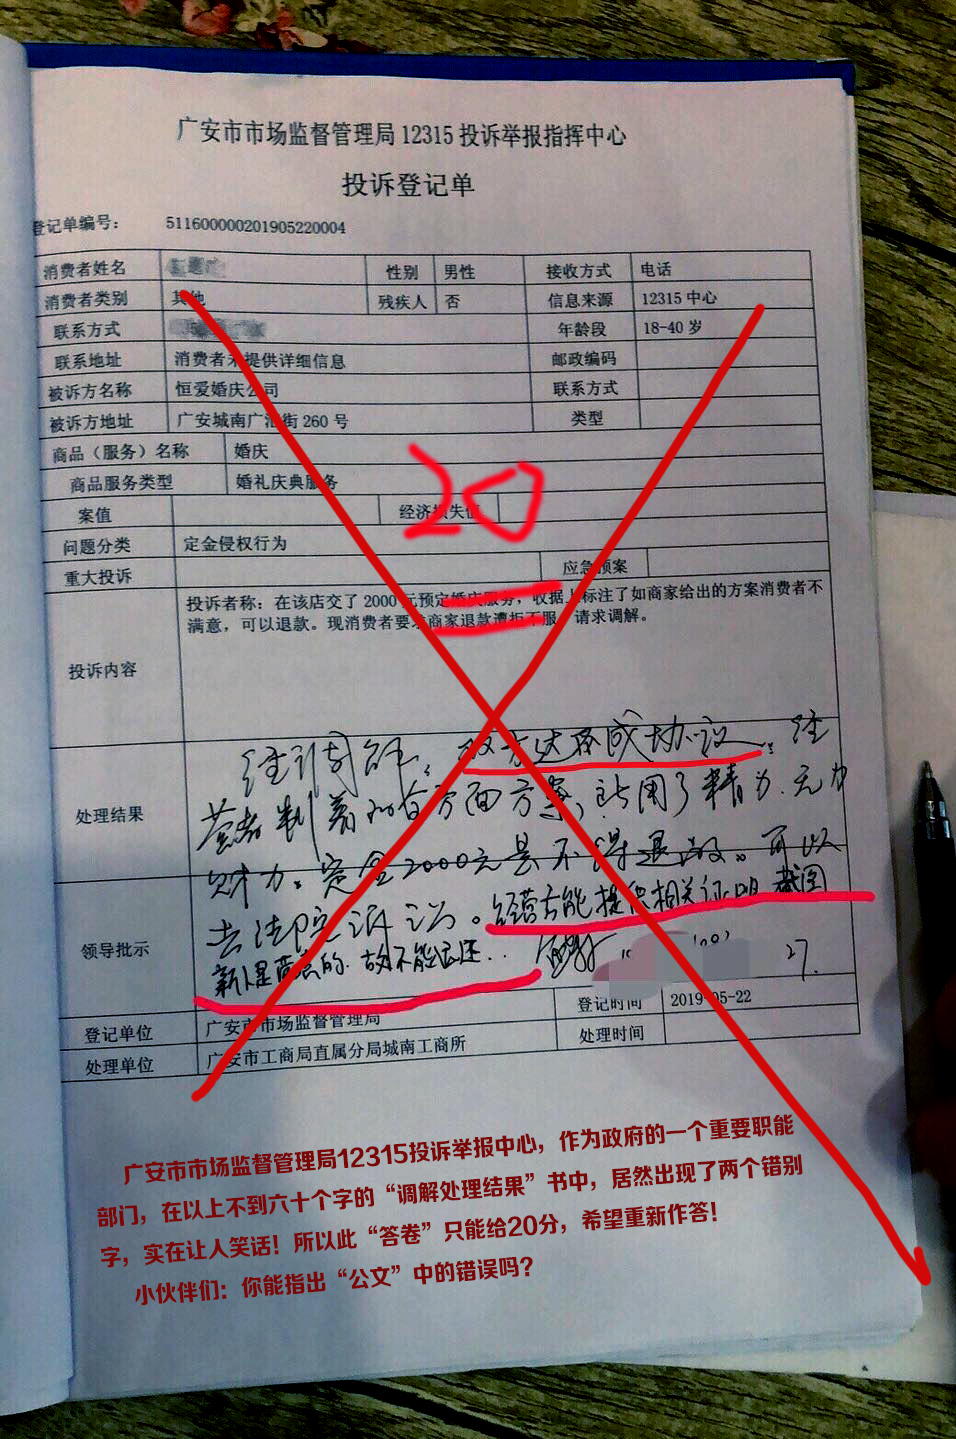 广安市市场监督管理局12315投诉举报指挥中心
投诉登记单
登记单编号： 511600000201905220004
消费者姓名 性别 男性 接收方式 电话
消费者类别 其他 残疾人 否 信息来源 12315中心
联系方式 年龄段 18-40岁
联系地址 消费者未提供详细信息 邮政编码
被诉方名称 恒爱婚庆公司 联系方式
被诉方地址 广安城南广 街260号 类型
商品（服务）名称 婚庆
商品服务类型 婚礼庆典服务
20
案值 经济损失值
问题分类 定金侵权行为
重大投诉 应急预案
投诉者称：在该店交了2000元预定婚庆服务，收据上标注了如商家给出的方案消费者不
满意，可以退款。现消费者要求商家退款遭拒不服，请求调解。
投诉内容
经调解，双方达不成协议。经
处理结果
营者制 方面方案， 用了精力、
财力。定金2000元是不得退 。可以
去法院诉 。经营者能提供相关证明 截图
领导批示
故不能 还..
27.
登记单位 广安市市场监督管理局 登记时间 2019-05-22
处理单位 广安市工商局直属分局城南工商所 处理时间
广安市市场监督管理局12315投诉举报中心，作为政府的一个重要职能
部门，在以上不到六十个字的“调解处理结果”书中，居然出现了两个错别
字，实在让人笑话！所以此“答卷”只能给20分，希望重新作答！
小伙伴们：你能指出“公文”中的错误吗？